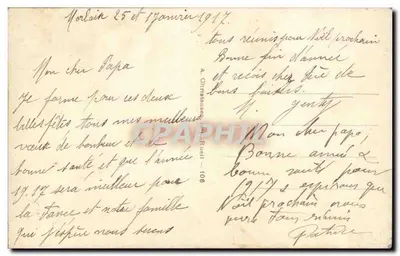 Morlaix 25 et 1 Janvier 1917.
Mon cher Papa
Je forme pour ces deux
belles fêtes, tous mes meilleurs
vœux de bonheur et de
bonne santé et que l'année
19.17 sera meilleur pour
la France et notre famille
que j'espère nous serons
tous réunis pour Noël prochain
Bonne fin d'année
et reçois cher père de
bons baisers.
Mon cher papa,
Bonne année &
bonne santé pour
1917 & esperons que
Noël prochain nous
tous réunis
CPARAMA
108